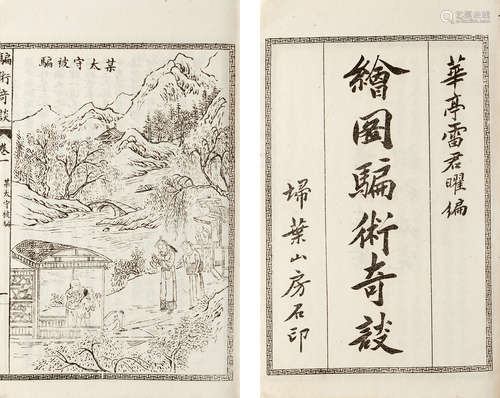 華亭雷君曜編
繪圖騙術奇談
埽葉山房石印
某太守被騙
騙術奇談
卷一
某太守被騙
一